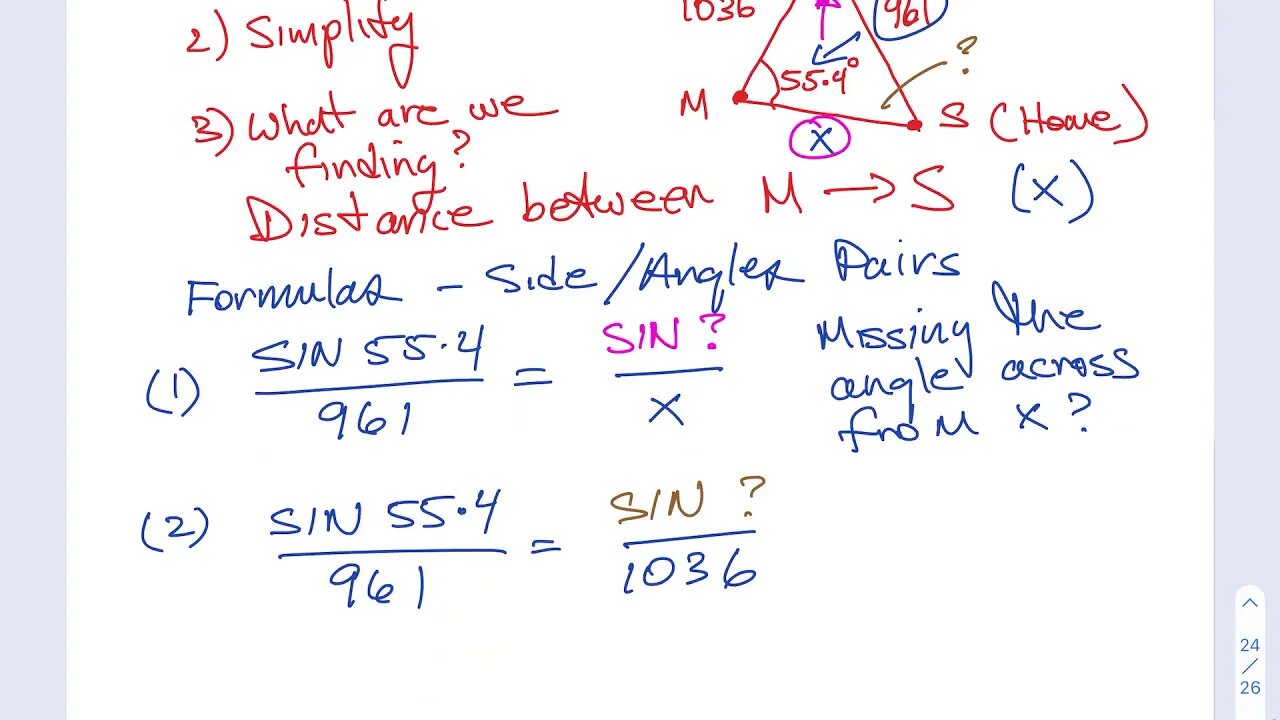 2) Simplify
1036
961
55.4°
?
M
S (Home)
X
3) What are we
finding?
Distance between M → S (X)
Formulas - Side/Angles Pairs
(1) SIN 55.4 / 961 = SIN ? / X
Missing the
angle across
from X?
(2) SIN 55.4 / 961 = SIN ? / 1036
24
/
26